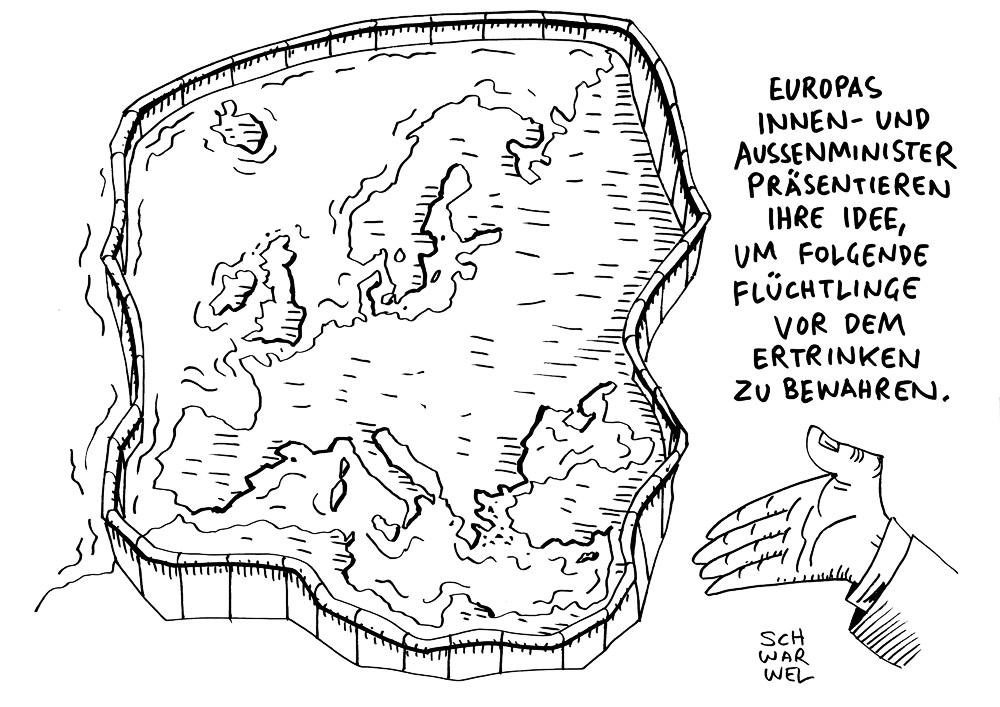 EUROPAS
INNEN- UND
AUSSENMINISTER
PRÄSENTIEREN
IHRE IDEE,
UM FOLGENDE
FLÜCHTLINGE
VOR DEM
ERTRINKEN
ZU BEWAHREN.
SCH
WAR
WEL